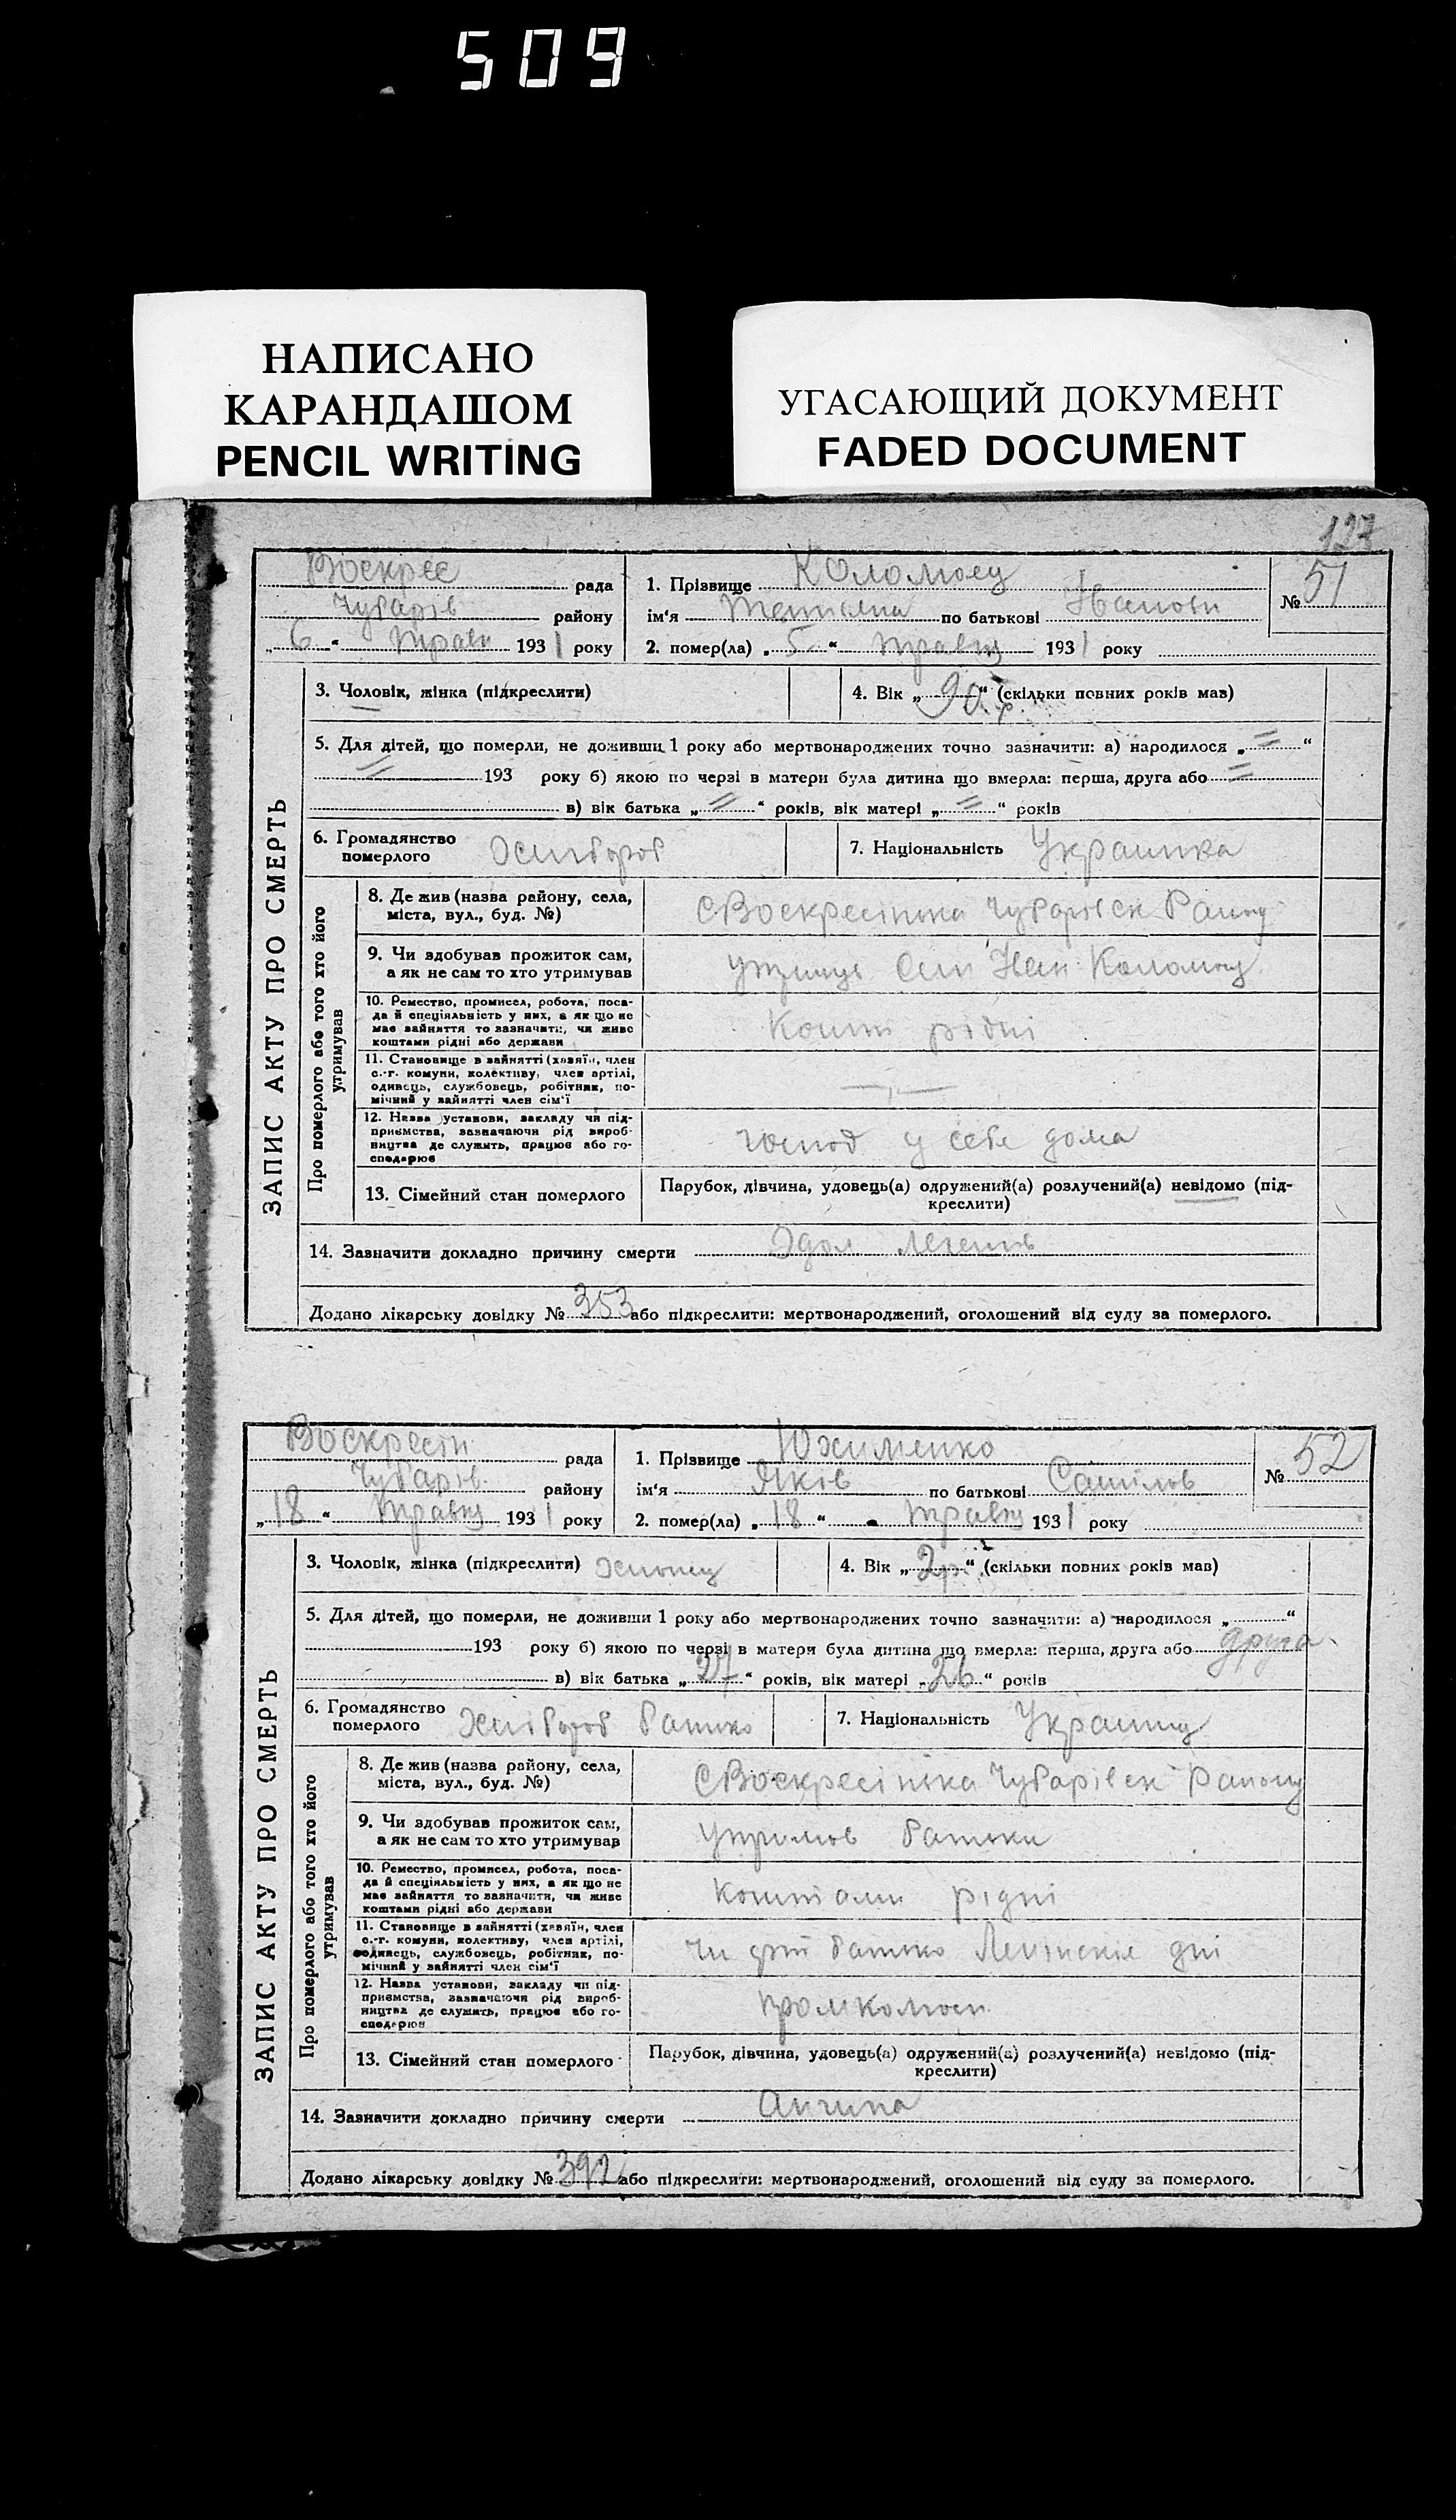 509
НАПИСАНО
КАРАНДАШОМ
PENCIL WRITING
УГАСАЮЩИЙ ДОКУМЕНТ
FADED DOCUMENT
127
ЗАПИС АКТУ ПРО СМЕРТЬ
Воскрес рада
Чубарів району
„6“ Травн 1931 року
1. Прізвище Коломоец
ім‘я Тетьяна по батькові Іванови
2. помер(ла) „5“ травня 1931 року
№ 51
3. Чоловік, жінка (підкреслити)
4. Вік „90р“ (скільки повних років мав)
5. Для дітей, що померли, не доживши 1 року або мертвонароджених точно зазначити: а) народилося „ = “
= 193 року б) якою по черзі в матери була дитина що вмерла: перша, друга або =
в) вік батька „ = “ років, вік матері „ = “ років
6. Громадянство
померлого Хлібороб
7. Національність Украинка
Про померлого або того хто його
утримував
8. Де жив (назва району, села,
міста, вул., буд. №) С Воскресінка Чубарівск Району
9. Чи здобував прожиток сам,
а як не сам то хто утримував Син Іван Коломоец
10. Ремество, промисел, робота, поса-
да й спеціяльність у них, а як що не
має зайняття то зазначити, чи живе
коштами рідні або держави Кошт рідні
11. Становище в зайнятті (хазяїн, член
с.-г. комуни, колективу, член артілі,
одинець, службовець, робітник, по-
мічний у зайнятті член сім‘ї —„—
12. Назва установи, закладу чи під-
приємства, зазначаючи рід вироб-
ництва де служить, працює або го-
сподарює господ у себе дома
13. Сімейний стан померлого
Парубок, дівчина, удовець(а) одружений(а) розлучений(а) невідомо (під-
креслити)
14. Зазначити докладно причину смерти
Додано лікарську довідку № 353 або підкреслити: мертвонароджений, оголошений від суду за померлого.
ЗАПИС АКТУ ПРО СМЕРТЬ
Воскресін рада
Чубарів. району
„18“ Травня 1931 року
1. Прізвище Юхименко
ім‘я Яків по батькові Самілов
2. помер(ла) „18“ травня 1931 року
№ 52
3. Чоловік, жінка (підкреслити) хлопец
4. Вік „2р“ (скільки повних років мав)
5. Для дітей, що померли, не доживши 1 року або мертвонароджених точно зазначити: а) народилося „ “
193 року б) якою по черзі в матери була дитина що вмерла: перша, друга або друга
в) вік батька „27“ років, вік матері „26“ років
6. Громадянство
померлого Хлібороб батько
7. Національність Украинец
Про померлого або того хто його
утримував
8. Де жив (назва району, села,
міста, вул., буд. №) С Воскресінка Чубарівск Району
9. Чи здобував прожиток сам,
а як не сам то хто утримував Утримов батьки
10. Ремество, промисел, робота, поса-
да й спеціяльність у них, а як що не
має зайняття то зазначити, чи живе
коштами рідні або держави коштами рідні
11. Становище в зайнятті (хазяїн, член
с.-г. комуни, колективу, член артілі,
одинець, службовець, робітник, по-
мічний у зайнятті член сім‘ї батько
12. Назва установи, закладу чи під-
приємства, зазначаючи рід вироб-
ництва де служить, працює або го-
сподарює
13. Сімейний стан померлого
Парубок, дівчина, удовець(а) одружений(а) розлучений(а) невідомо (під-
креслити)
14. Зазначити докладно причину смерти Ангина
Додано лікарську довідку № 392 або підкреслити: мертвонароджений, оголошений від суду за померлого.